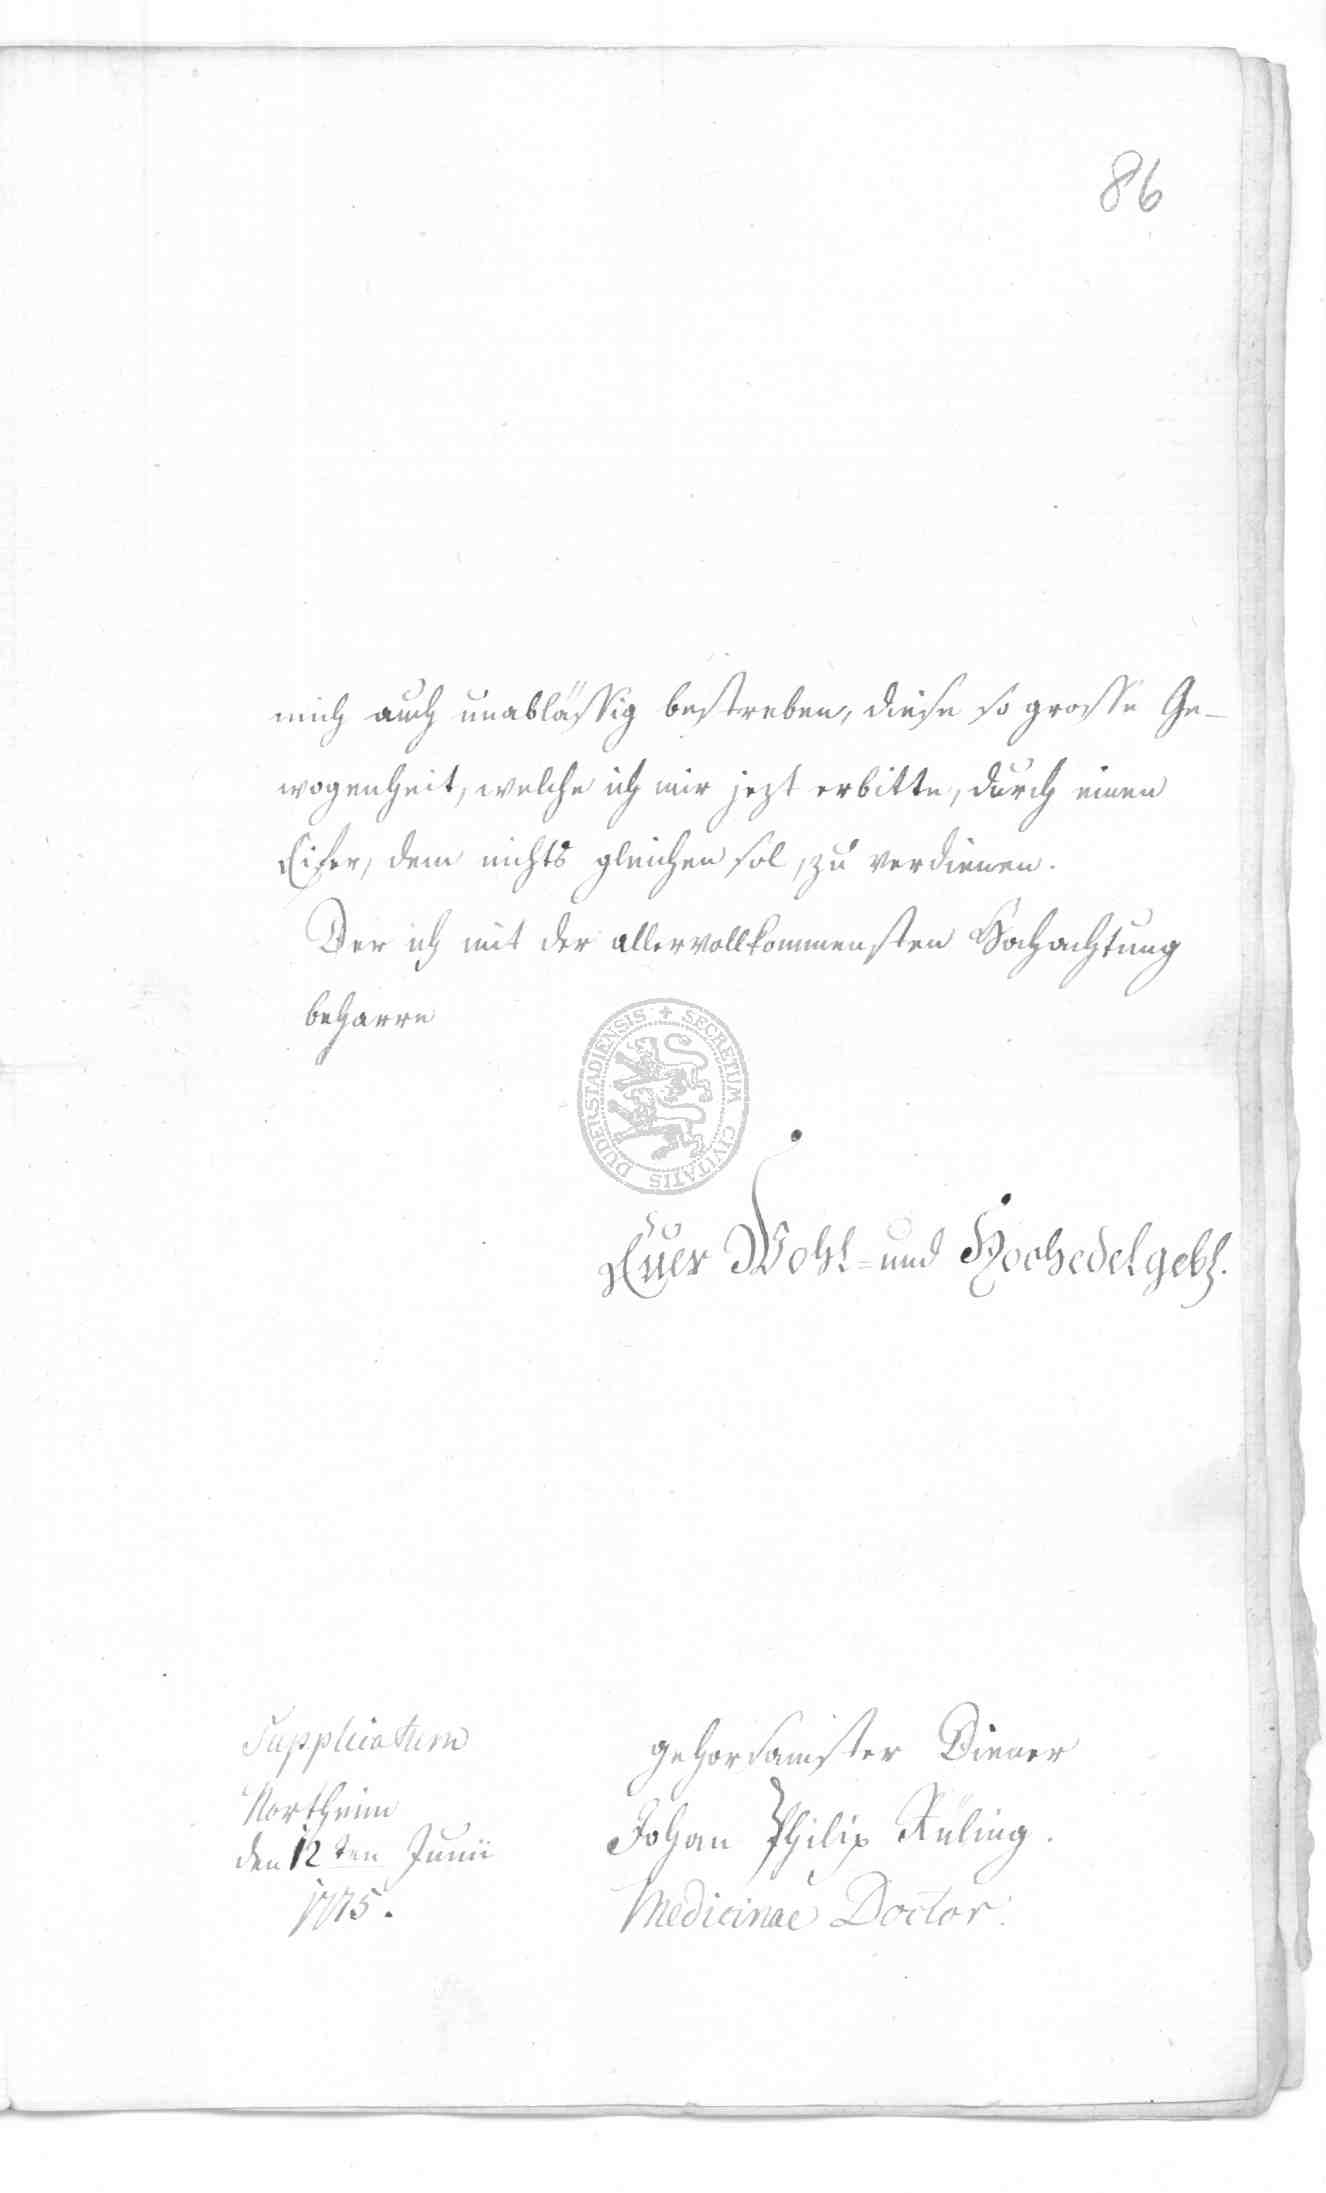 86
mich auch unablässig bestreben, diese so grosse Ge-
wogenheit, welche ich mir jezt erbitte, durch einen
Eifer, dem nichts gleichen sol, zu verdienen.
Der ich mit der allervollkommensten Hochachtung
beharre
SECRETUM CIVITATIS DUDERSTADIENSIS
Euer Wohl- und Hochedelgebh.
Supplicatum
Northeim
den 12ten Junii
1775.
gehorsamster Diener
Johan Philip Rüling.
Medicinae Doctor.